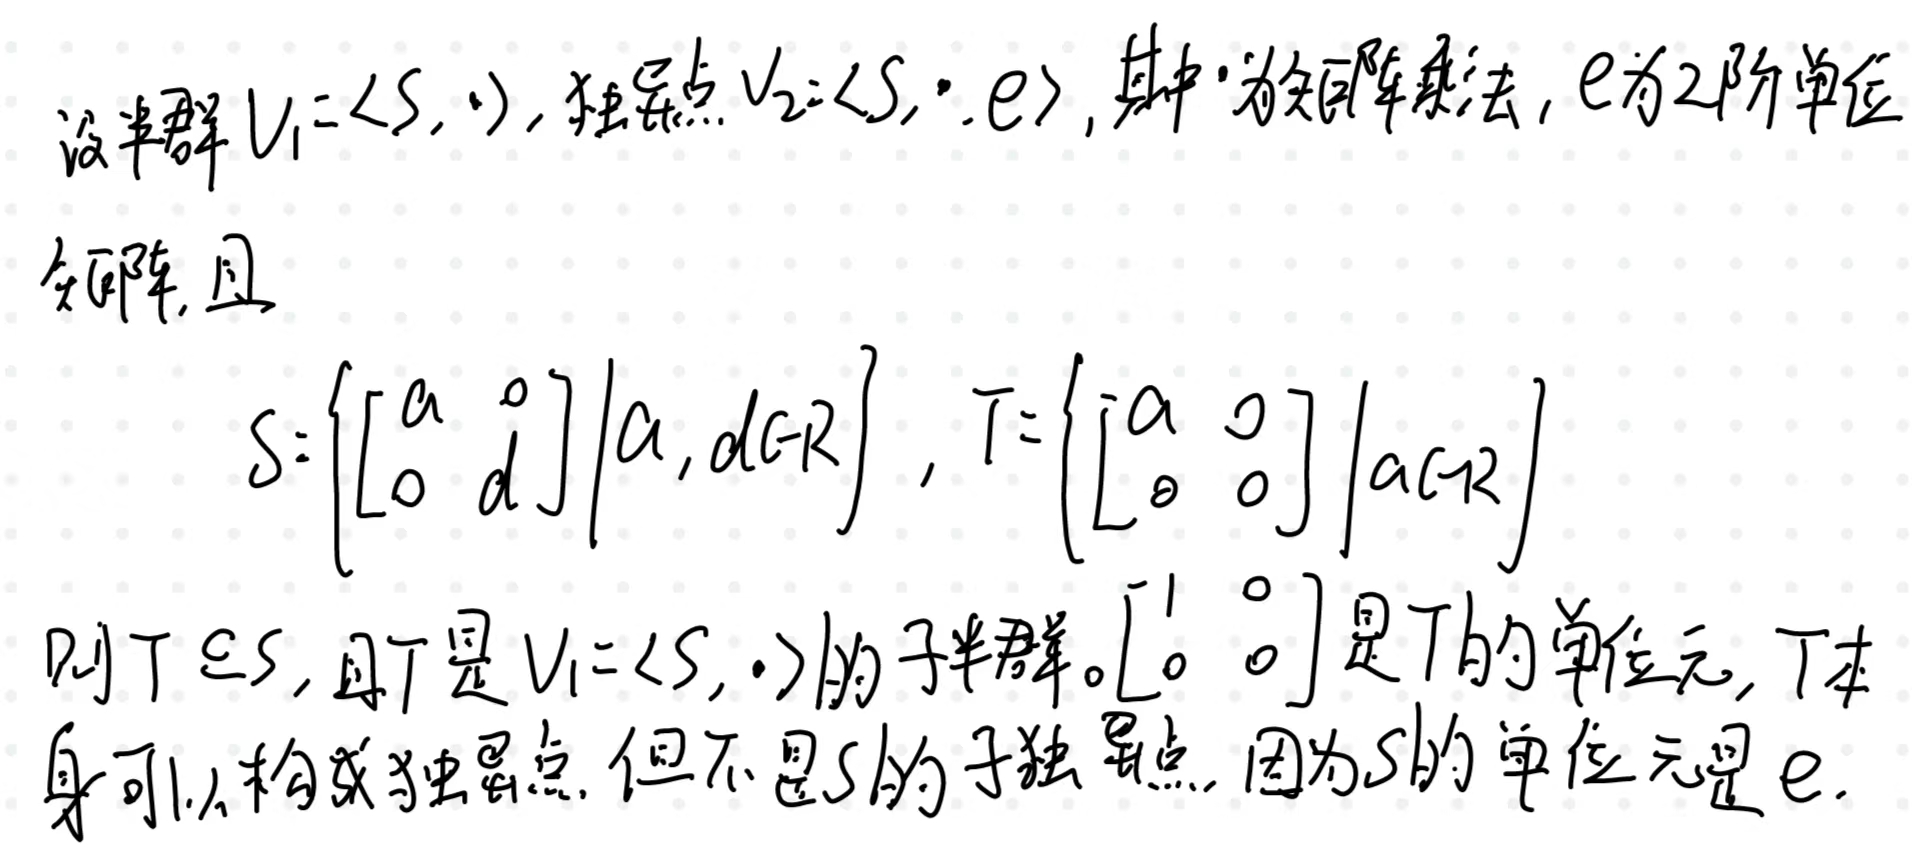 设半群 V₁=<S,·>,独异点 V₂=<S,·,e>,其中·为矩阵乘法,e为2阶单位
矩阵,且
S={[a 0; 0 d] | a,d∈R}, T={[a 0; 0 0] | a∈R}
则T⊆S,且T是V₁=<S,·>的子半群。[1 0; 0 0]是T的单位元,T本
身可以构成独异点,但不是S的子独异点,因为S的单位元是e.